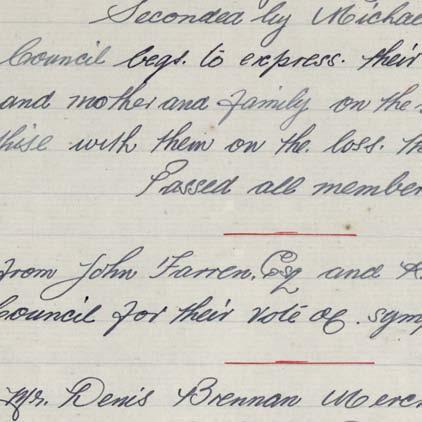 Seconded by Michael
Council begs. to express. their
and mother and family on the
thise with them on the. loss. th
Passed all member
from John Farren, Esq and
Council for their vote of. symp
Mr. Denis Brennan Merc